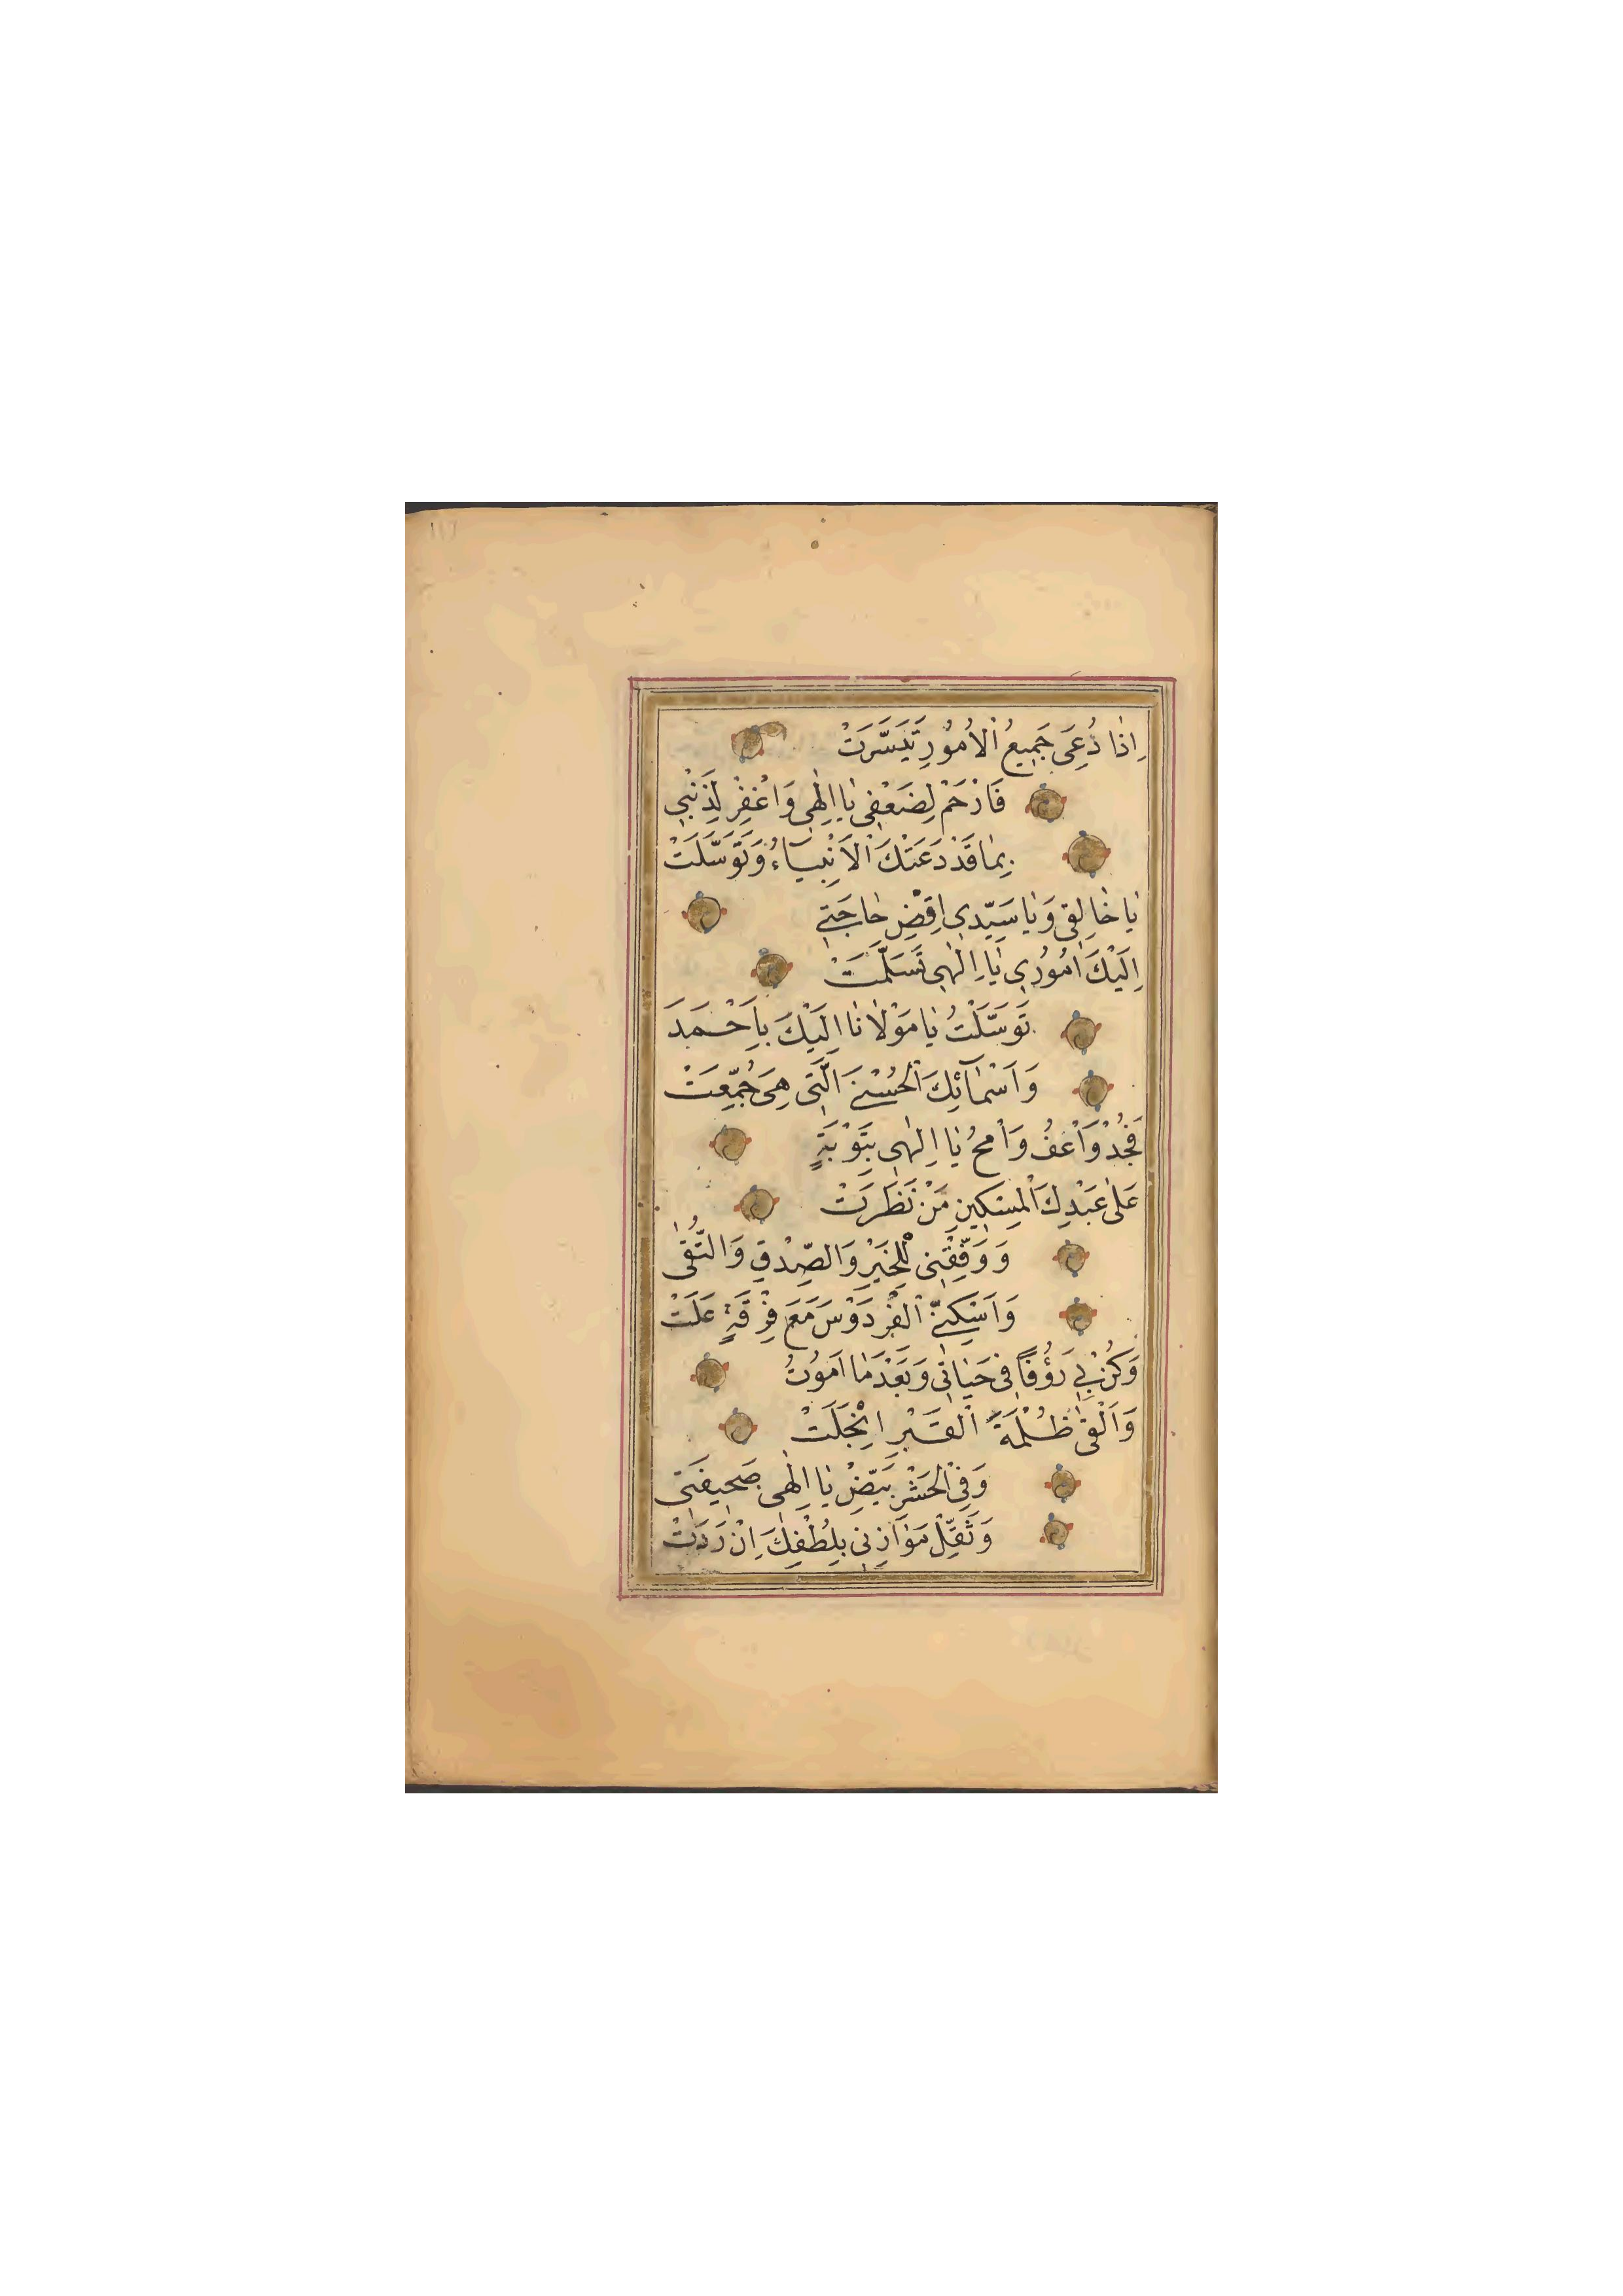 ١١٦
اِذَا دُعِىَ جَمِيعُ الْاُمُوُرِ تَيَسَّرَتْ
فَارْحَمْ لِضَعْفِى يَا اِلٰهِى وَاغْفِرْ لِذَنْبِى
بِمَا قَدْ دَعَتْكَ الْاَنْبِيَاءُ وَتَوَسَّلَتْ
يَا خَالِقِى وَيَا سَيِّدِى اِقْضِ حَاجَتِى
اِلَيْكَ اُمُورِى يَا اِلٰهِى تَسَلَّمَتْ
تَوَسَّلْتُ يَا مَوْلَانَا اِلَيْكَ بِاَحْمَدَ
وَاَسْمَآئِكَ الْحُسْنَى الَّتِى هِىَ جُمِّعَتْ
فَجُدْ وَاعْفُ وَامْحُ يَا اِلٰهِى بِتَوْبَةٍ
عَلٰى عَبْدِكَ الْمِسْكِينِ مَنْ نَظَرَتْ
وَوَفِّقْنِى لِلْخَيْرِ وَالصِّدْقِ وَالتُّقٰى
وَاَسْكِنِّى الْفِرْدَوْسَ مَعَ فِرْقَةٍ عَلَتْ
وَكُنْ بِى رَؤُفًا فِى حَيَاتِى وَبَعْدَمَا اَمُوتُ
وَاَلْقٰى ظُلْمَةً الْقَبْرِ اِنْجَلَتْ
وَفِى الْحَشْرِ بَيِّضْ يَا اِلٰهِى صَحِيفَتِى
وَثَقِّلْ مَوَازِنِى بِلُطْفِكَ اِنْ رَدَتْ